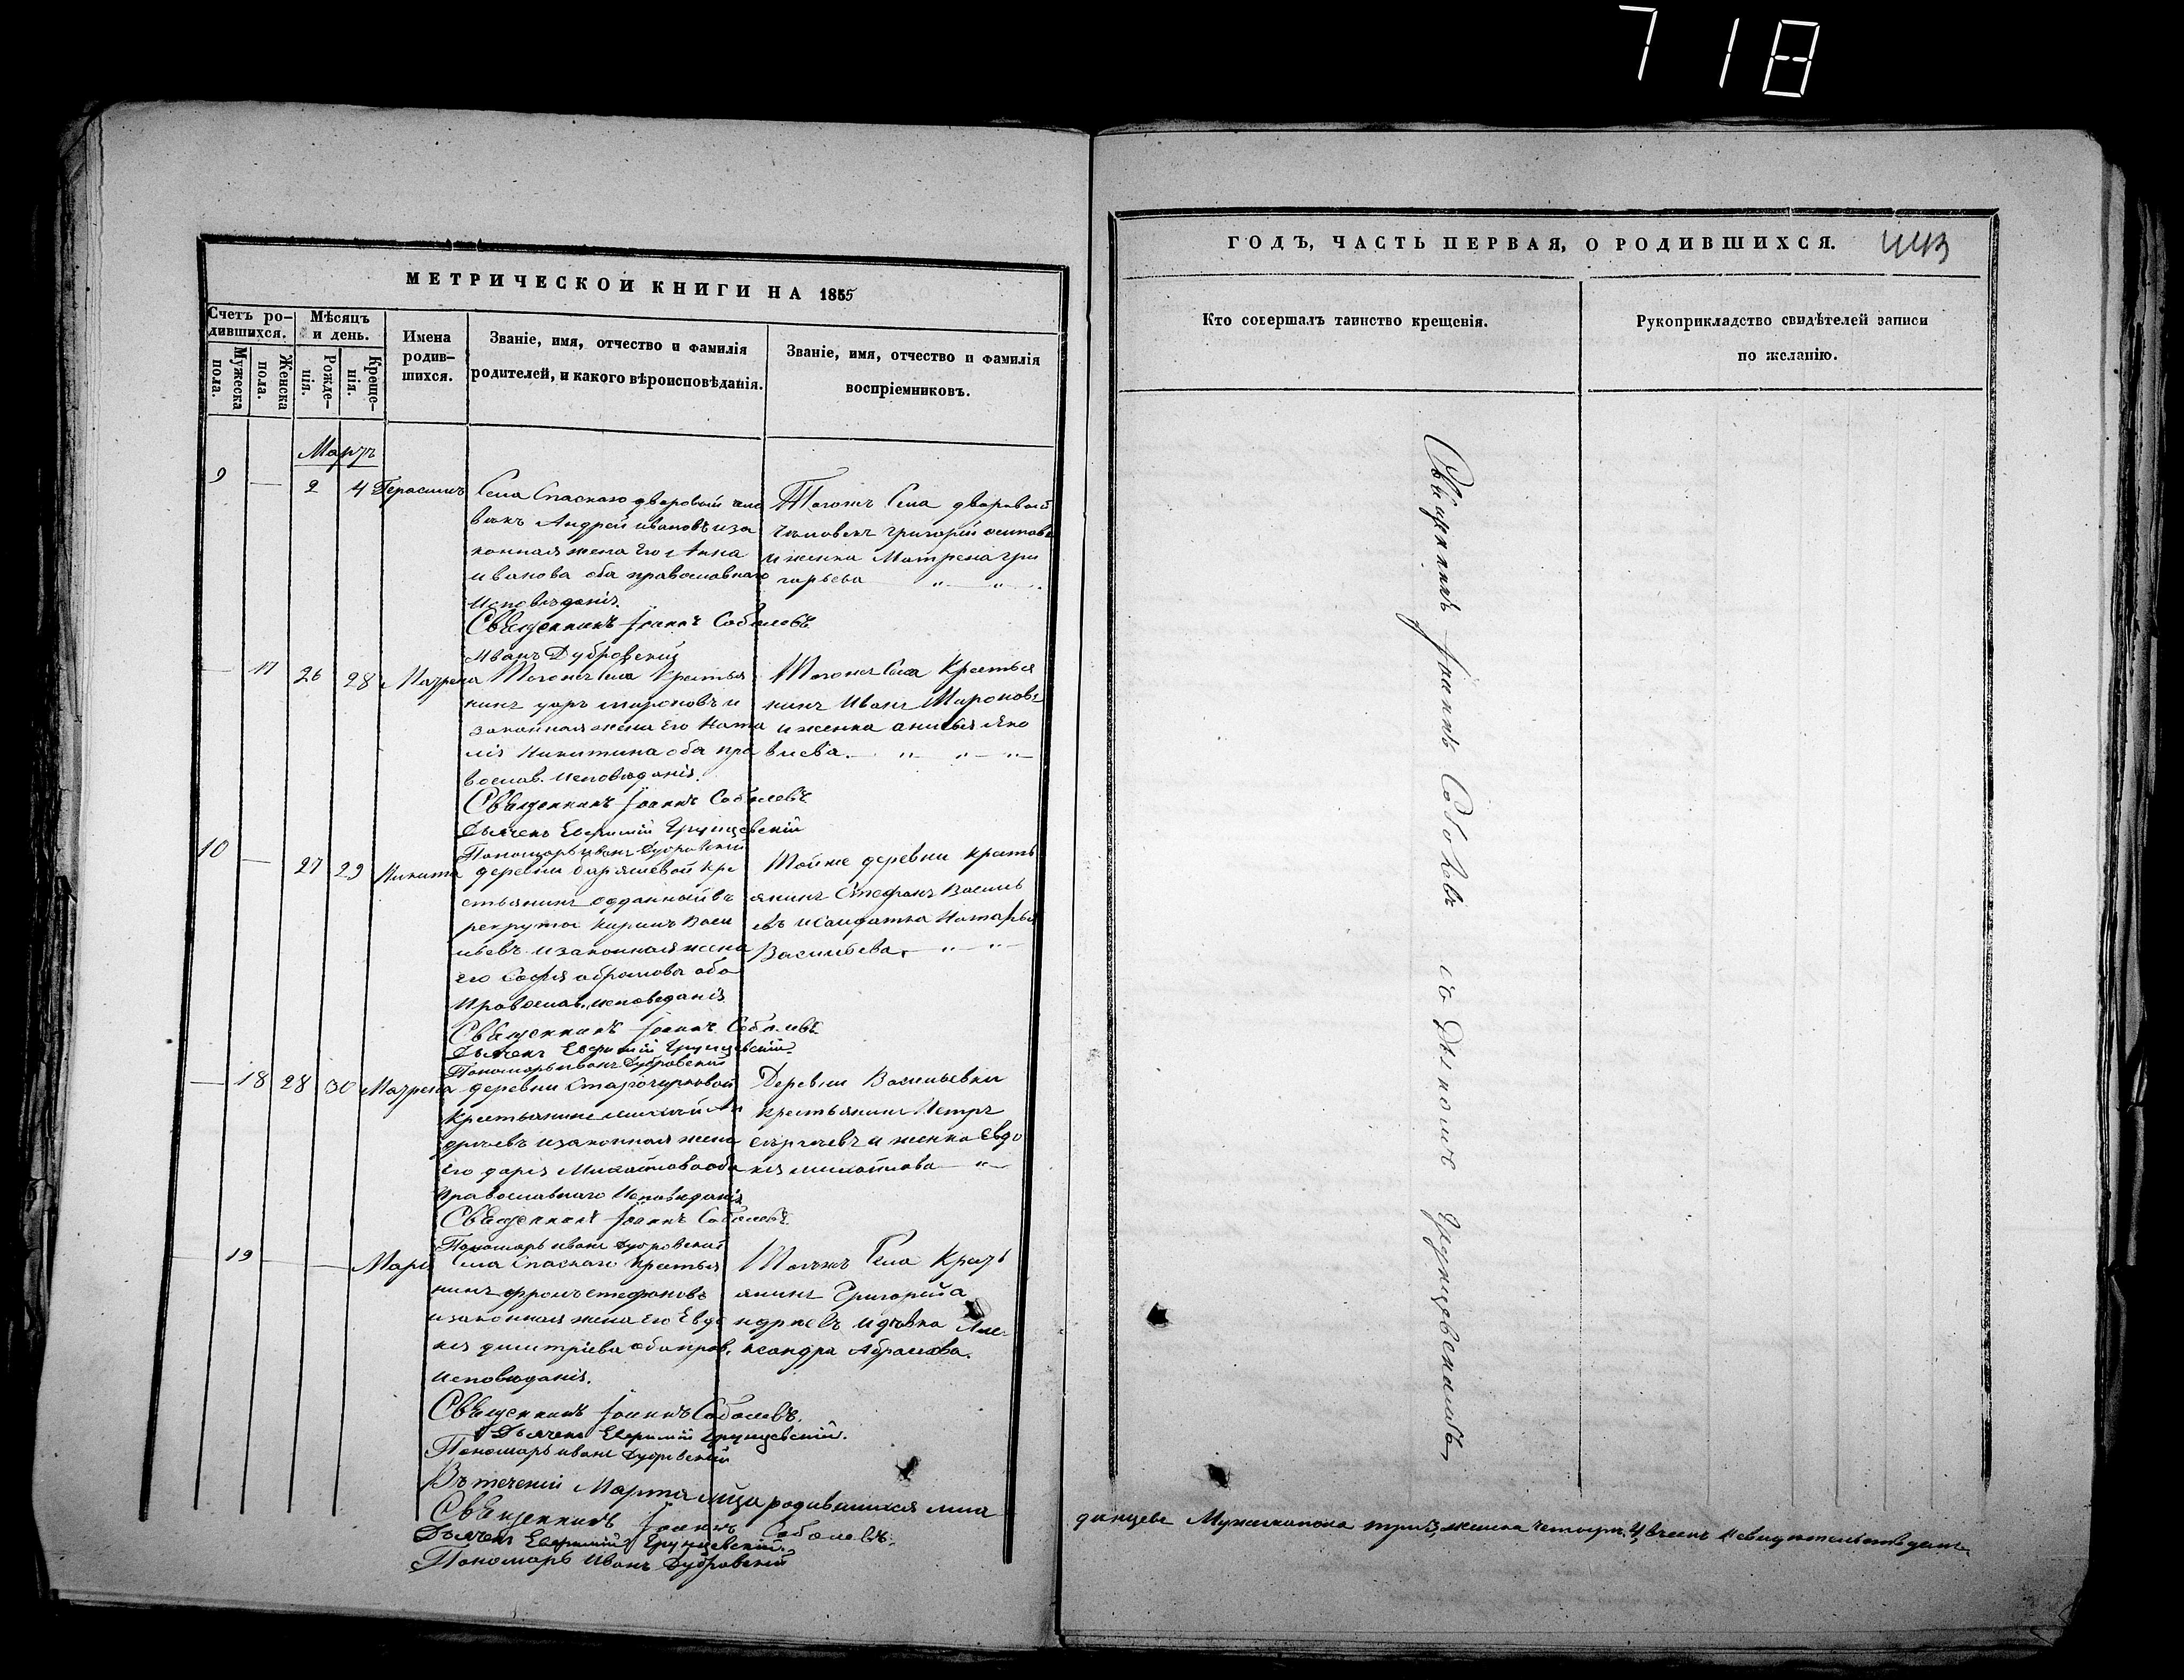 718
МЕТРИЧЕСКОЙ КНИГИ НА 1855
Счетъ ро-
дившихся.
Мѣсяцъ
и день.
Мужеска
пола.
Женска
пола.
Рожде-
нія.
Креще-
нія.
Имена
родив-
шихся.
Званіе, имя, отчество и фамилія
родителей, и какого вѣроисповѣданія.
Званіе, имя, отчество и фамилія
воспріемниковъ.
Мартъ
9 — 2 4 Герасимъ
Села Спаскаго дворовый чело
векъ Андрей ивановъ иза
конная жена Его Анна
иванова оба православнаго
Исповѣданія.
Священникъ Іоаннъ Соболевъ
Иванъ Дубровский
Тогожъ Села дворовой
человекъ григорій осиповъ
и женка Матрена гри
горьева
— 17 26 28 Матрена
Тогожъ Села Крестья
нинъ мироновъ и
законная жена Его Ната
лія Никитина оба пра
вослав. исповѣданія.
Священникъ Іоаннъ Соболевъ
Дьячекъ Евфимій Грунцевскій
Пономарь иванъ Дубровский
Тогожъ Села Крестья
нинъ Иванъ Мироновъ
и женка анисья Яко
влева.
10 — 27 29 Никита
деревни Кре
стьянинъ отданный въ
рекруты Васи
льевъ и законная жена
его Софья абрамова оба
Православ. исповеданія
Священникъ Іоаннъ Соболевъ
Дьячекъ Евфимій Грунцевскій.
Пономарь иванъ Дубровский
Тойже деревни кресть
янинъ Стефанъ Василь
евъ и солдатка Наталья
Васильева.
— 18 28 30 Матрена
деревни
Крестьянинъ Ан
дреевъ и законная жена
его дарія Михайлова оба
Православнаго Исповѣданія
Священникъ Іоаннъ Соболевъ.
Пономарь иванъ Дубровский
Деревни Васильевки
крестьянинъ Петръ
сергеевъ и женка Евдо
кея михайлова
— 19 — — Марія
Села Спаскаго Крестья
нинъ стефановъ
и законная жена Его Евдо
кея димитріева оба прав.
исповѣданія.
Священникъ Іоаннъ Соболевъ.
Дьячекъ Евфимій Грунцевскій.
Пономарь иванъ Дубровский
Тогожъ Села Крестъ
янинъ Григорій а
ндреевъ и дѣвка Але-
ксандра Абрамова.
Въ теченіи Марта родившихся мла
Священникъ Іоаннъ Соболевъ.
Дьячекъ Евфимій Грунцевскій.
Пономарь Иванъ Дубровский
ГОДЪ, ЧАСТЬ ПЕРВАЯ, О РОДИВШИХСЯ.
443
Кто совершалъ таинство крещенія.
Рукоприкладство свидѣтелей записи
по желанію.
Священникъ Іоаннъ Соболевъ съ Дьячкомъ Грунцевскимъ
денцевъ Мужескапола три 3, женска четыре 4,